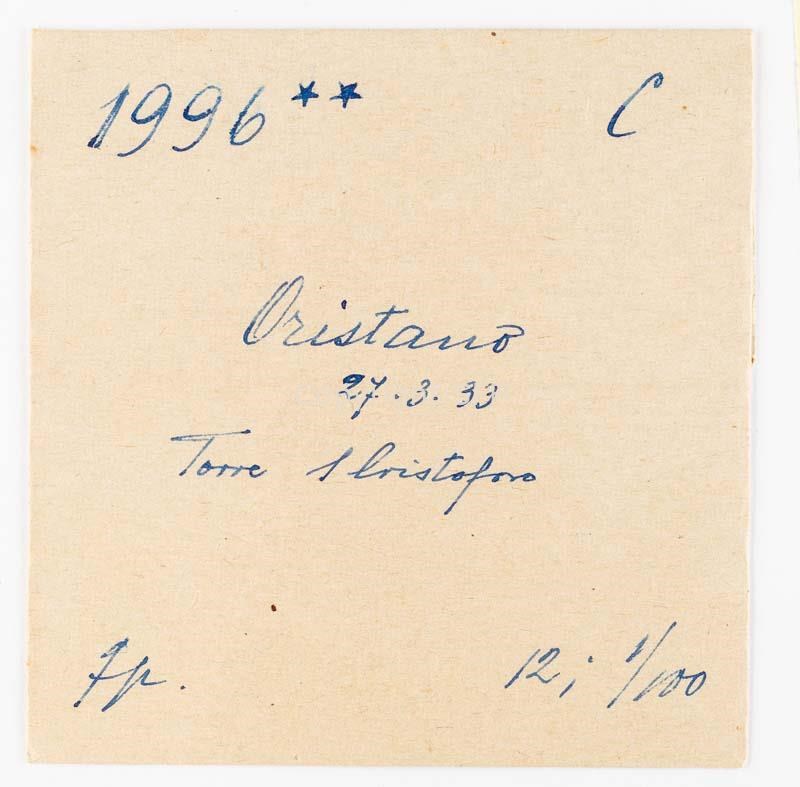 1996** C
Oristano
27.3.33
Torre S Cristoforo
Fp.
12; 1/100